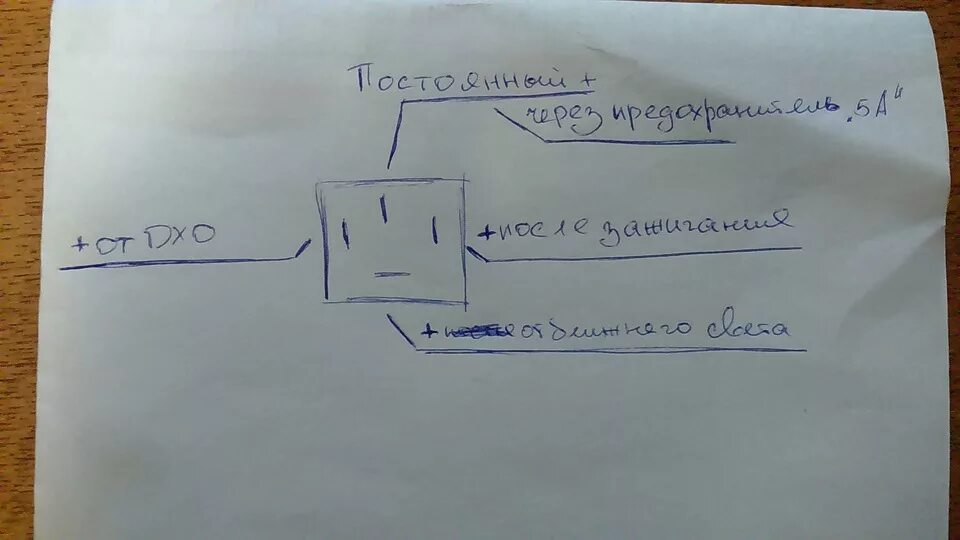 Постоянный +
через предохранитель „5А"
+ от ДХО
+ после зажигания
+ от ближнего света